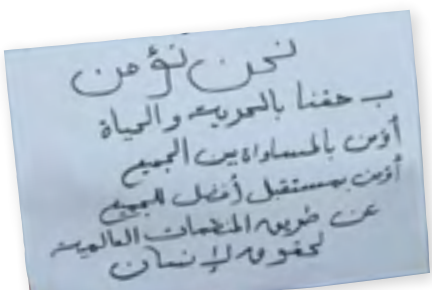 نحن نؤمن
ب حقنا بالحرية والحياة
أؤمن بالمساواة بين الجميع
أؤمن بمستقبل أفضل للجميع
عن طريق المنظمات العالمية
لحقوق الإنسان